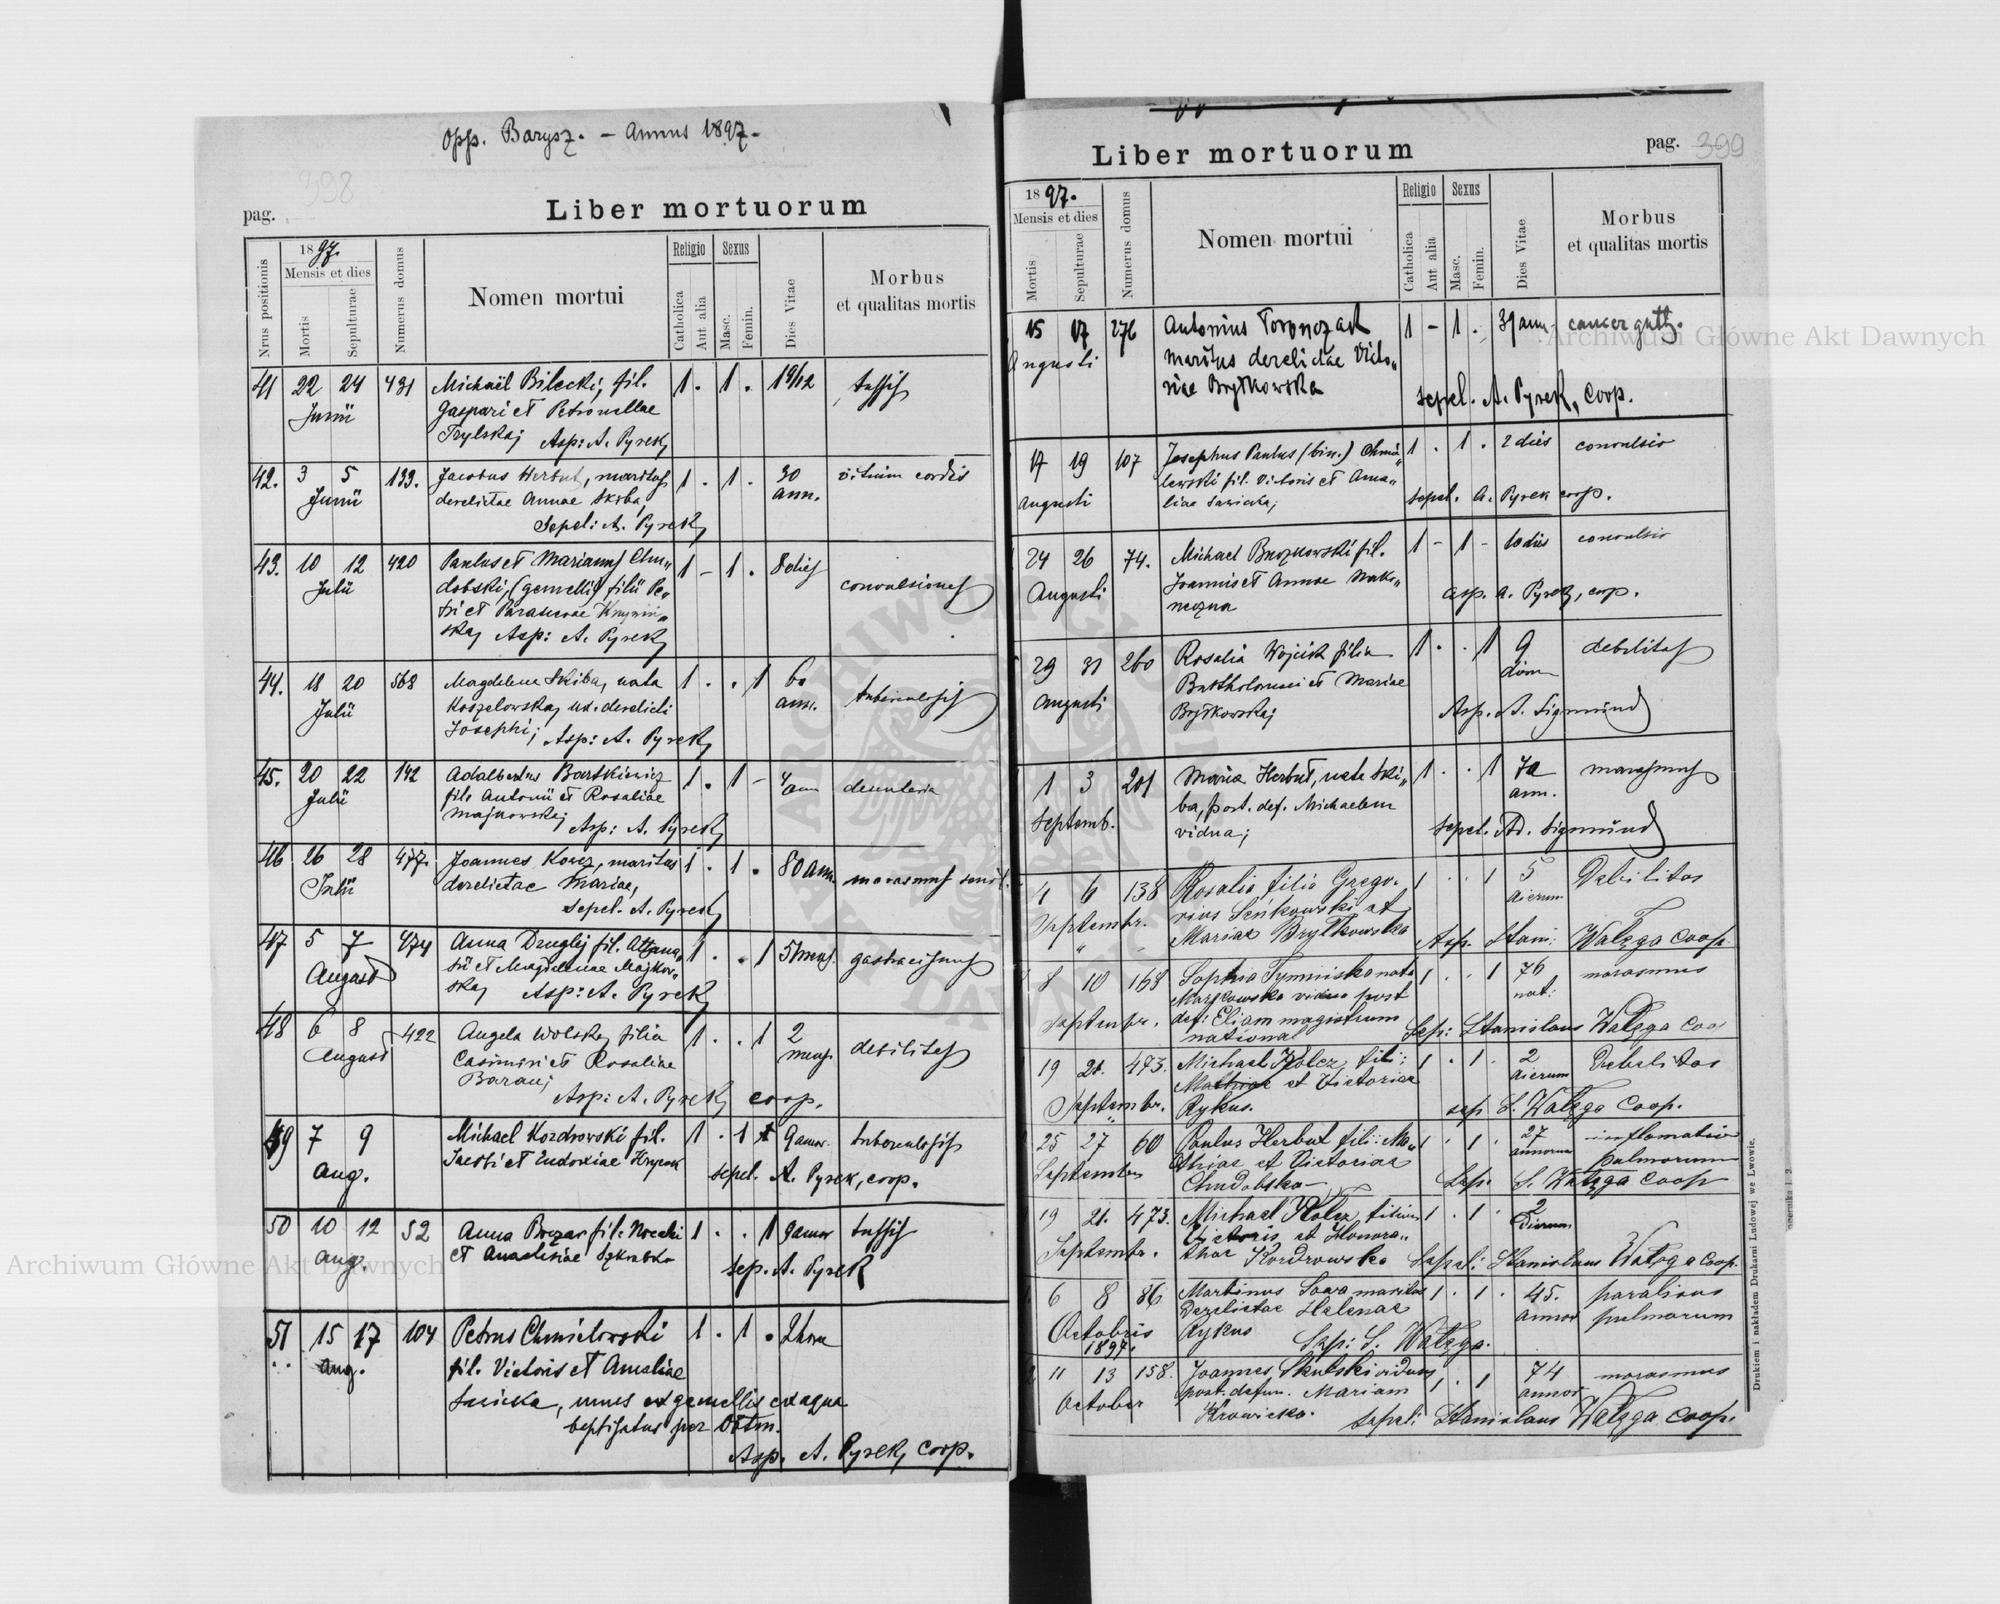 Opp. Barysz. – Annus 1897.
398
pag.
Liber mortuorum
Nrus positionis
1897.
Mensis et dies
Mortis
Sepulturae
Numerus domus
Nomen mortui
Religio
Catholica
Aut alia
Sexus
Masc.
Femin.
Dies Vitae
Morbus
et qualitas mortis
41 22 24 431 Michaël Bilecki, fil. 1 . 1 . 19/12 tussis
Junii Gaspari et Petronellae
Trylskaj Asp: A. Pyrek
42. 3 5 133. Jacobus Herbut, maritus 1 . 1 . 30 vitium cordis
Junii derelictae Annae Skiba, ann.
Sepel: A. Pyrek
43. 10 12 420 Paulus et Mariannus Chu- 1 – 1 . 8 dies
Julii dobski, (gemelli) filii Pe- convulsiones
tri et Parascevae
Asp: A. Pyrek
44. 18 20 568 Magdelena Skiba, nata 1 . . 1 60 tuberculosis
Julii Koszelowska, ux. derelicti ann.
Josephi; Asp: A. Pyrek
45. 20 22 142 Adalbertus Bartkiewicz 1 . 1 – 4 ann
Julii fil. Antonii et Rosaliae
Majkowskaj Asp: A. Pyrek
46 26 28 477. Joannes Koncz, maritus 1 . 1 . 80 ann. marasmus senil.
Julii derelictae Mariae,
Sepel. A. Pyrek
47 5 7 474 Anna fil. 1 . . 1 5 mens.
August et Magdalenae Majkow-
skaj Asp: A. Pyrek
48 6 8 422 Angela Wolska, filia 1 . . 1 2 debilitas
August Casimiri et Rosaliae mens.
Baran;
Asp: A. Pyrek coop.
49 7 9 Michael Kozdrowski fil. 1 . 1 9 annor. tuberculosis
Aug. Jacobi et Eudoxiae
sepel. A. Pyrek, coop.
50 10 12 52 Anna fil. 1 . . 1 9 annor tussis
Aug. et Anastasiae
sep. A. Pyrek
51 15 17 104 Petrus Chmielowski 1 . 1 . 2 hora
Aug. fil. Victoris et Amaliae
Sawicka, unus ex gemellis ex aqua
baptisatus per obstm.
Asp. A. Pyrek, coop.
Liber mortuorum
pag. 399
1897.
Mensis et dies
Mortis
Sepulturae
Numerus domus
Nomen mortui
Religio
Catholica
Aut alia
Sexus
Masc.
Femin.
Dies Vitae
Morbus
et qualitas mortis
15 17 276 Antonius Toronczak 1 – 1 . 31 ann. cancer gutt.
Augusti maritus derelictae Victo-
riae Brytkowska
sepel. A. Pyrek, coop.
17 19 107 Josephus Paulus (bin.) Chmie- 1 . 1 . 2 dies convulsio
Augusti lewski fil. Victoris et Ama-
liae Sawicka; sepel. A. Pyrek coop.
24 26 74. Michael Buczkowski fil. 1 – 1 – 10 dies convulsio
Augusti Joannis et Annae
asp. A. Pyrek, coop.
29 31 260 Rosalia Wojcik filia 1 . . 1 9 debilitas
Augusti Bartholomei et Mariae dierum
Brytkowskaj Asp. A. Sigmund
1 3 201 Maria Herbut, nata Ski- 1 . . 1 72 marasmus
Septemb. ba, post. def. Michaelem ann.
vidua; sepel. Ad. Sigmund
4 6 138 Rosalia filia Grego- 1 . . 1 5 Debilitas
Septembr. rius Seńkowski et dierum
Mariae Brytkowska Asp. Stani: Wałęga Coop
8 10 168 Sophia Tymińska nata 1 . . 1 76 marasmus
Septembr. Majkowska vidua post nat:
def: Eliam magistrum
national Sep: Stanislaus Wałęga Coo
19 21. 473. Michael Kolcz, fil: 1 . 1 . 2 Debilitas
Septembr. et Victoriae dierum
Rykus. sep S. Wałęga Coop.
25 27 60 Paulus Herbut fili: Ma- 1 . 1 . 27 inflamatio
Septembr thiae et Victoriae annorum pulmorum
Chudobska Sep. S. Wałęga Coop
19 21. 473. Michael Kolcz, filius 1 . 1 . 2
Septembr. Victoris et Honora- dierum
thae Kozdrowska Sepel: Stanislaus Wałęga Coop.
6 8 86 Martinus Sawa maritus 1 . 1 . 45. paralisus
Octobris Derelictae Helenae annor pulmorum
1897. Rykus Sep: S. Wałęga.
11 13 158. Joannes Skulski viduus 1 . 1 74 marasmus
October post. defun. Mariam annor
Krowicka. sepel: Stanislaus Wałęga Coop.
Drukiem i nakładem Drukarni Ludowej we Lwowie.
Archiwum Główne Akt Dawnych
Archiwum Główne Akt Dawnych